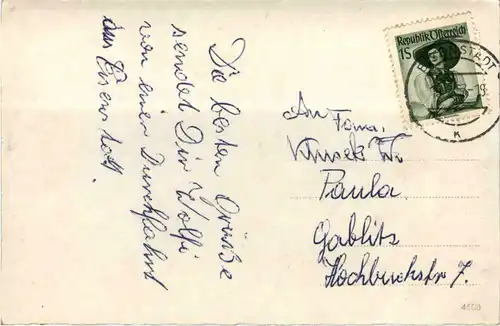 Die besten Grüße
sendet Dir Wolfi
von einer Durchfahrt
aus Eisenstadt.
Republik Österreich
1S
An
Paula
Gablitz
Hochbuchstr 7.
K
4608